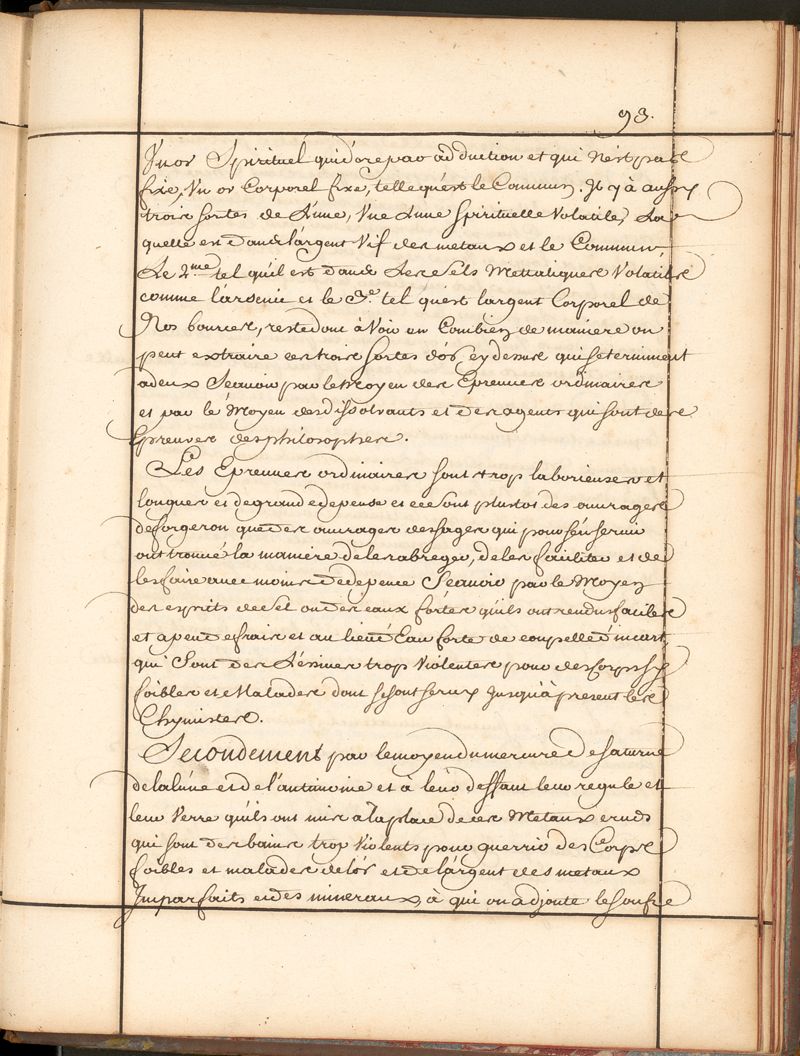 93.
Un or Spirituel qui d'ore par adduction et qui n'est pas
fixe, Un or Corporel fixe, telle qu'est le Commun. Il y à aussy
trois sortes de Lune, Une Lune Spirituelle Volatile, La
quelle est dans l'argent Vif des metaux et le Commun,
Le 2.me tel qu'il est dans les sels Mettaliques Volatils
comme l'arsenic et le 3.e tel qu'est l'argent Corporel de
Nos bources, reste donc à Voir en Combien de maniere on
peut extraire ces trois sortes d'or cy dessus qui se terminent
a deux Scauoir par le Moyen des Epreuues ordinaires
et par le Moyen des dissolvants et des agents qui sont des
Epreuves des philosophes.
Les Epreuues ordinaires sont trop laborieuses et
longues et de grande depense et ce sont plustot des ouvrages
de forgeron que des ouvrages des sages qui pour s'en seruir
ont trouué la maniere de les abreger, de les faciliter et de
les faire auec moins de depence Scauoir par le Moyen
des esprits de sel ou des eaux fortes qu'ils ont rendus faciles
et a peu de frais et au lieu d'Eau forte de coupelle d'incart,
qui Sont des Lessiues trop Violentes pour des Corps sy
foibles et Malades dont se sont seruis Jusqu'à present les
Chymistes.
Secondement par le moyen du mercure de saturne
de la lune et de l'antimoine et à leur deffaut leur regule et
leur Verre qu'ils ont mis a la place de ces Metaux cruds
qui sont des bains trop Violents pour guerrir des Corps
foibles et malades de l'or et de l'argent des metaux
Imparfaits et des mineraux, à qui on adjoute le soufre